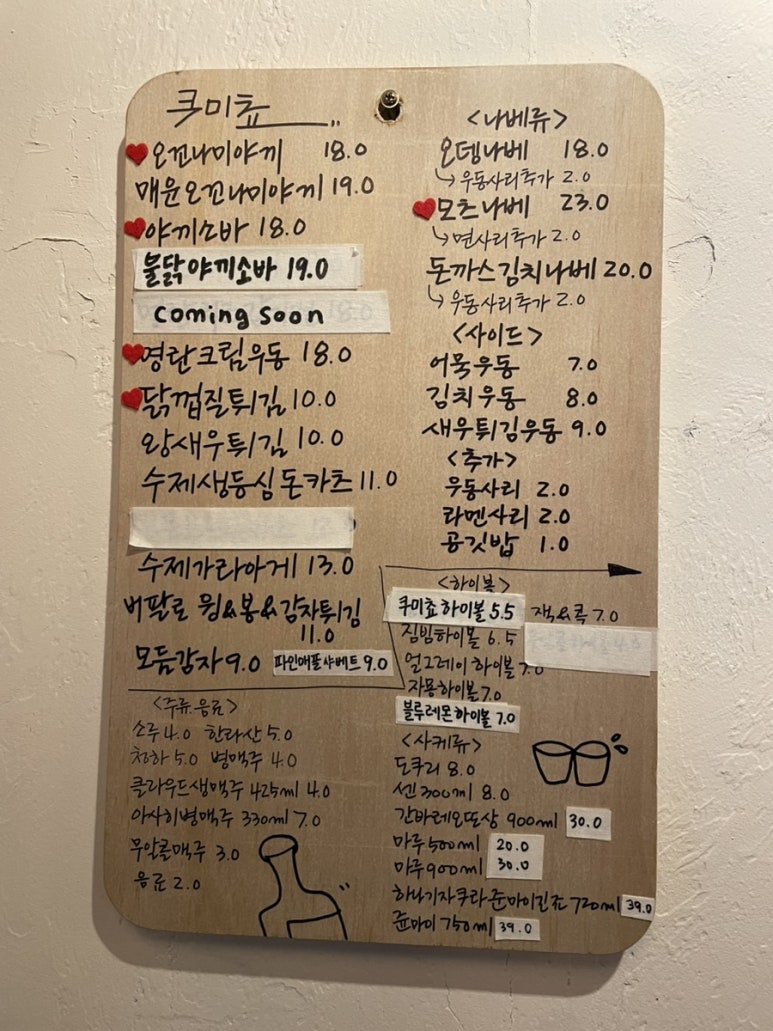 쿠미쵸
오꼬나미야끼 18.0
매운오꼬나미야끼 19.0
야끼소바 18.0
불닭야끼소바 19.0
coming soon
명란크림우동 18.0
닭껍질튀김 10.0
왕새우튀김 10.0
수제생등심돈카츠 11.0
수제가라아게 13.0
버팔로 윙&봉&감자튀김
11.0
모듬감자 9.0
파인애플샤베트 9.0
<나베류>
오뎅나베 18.0
우동사리추가 2.0
모츠나베 23.0
면사리추가 2.0
돈까스김치나베 20.0
우동사리추가 2.0
<사이드>
어묵우동 7.0
김치우동 8.0
새우튀김우동 9.0
<추가>
우동사리 2.0
라멘사리 2.0
공깃밥 1.0
<하이볼>
쿠미쵸하이볼 5.5 잭&콕 7.0
짐빔하이볼 6.5
얼그레이 하이볼 7.0
자몽하이볼 7.0
블루레몬하이볼 7.0
<사케류>
도쿠리 8.0
센 300ml 8.0
간바레오또상 900ml 30.0
마루 500ml 20.0
마루 900ml 30.0
하나기자쿠라-쥰마이긴죠 720ml 39.0
쥰마이 750ml 39.0
<주류.음료>
소주 4.0 한라산 5.0
청하 5.0 병맥주 4.0
클라우드생맥주 425ml 4.0
아사히병맥주 330ml 7.0
무알콜맥주 3.0
음료 2.0